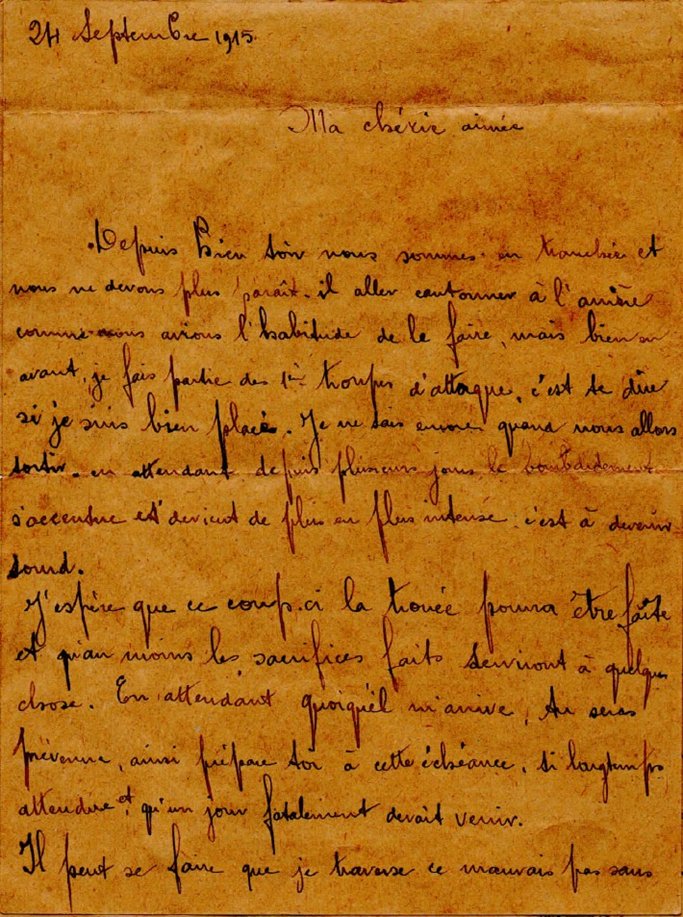 24 Septembre 1915.
Ma chérie aimée
Depuis hier soir nous sommes en tranchée et
nous ne devons plus paraît-il aller cantonner à l'arrière
comme nous avions l'habitude de le faire, mais bien en
avant, je fais partie des 1ères troupes d'attaque, c'est te dire
si je suis bien placé. Je ne sais encore quand nous allons
sortir. en attendant depuis plusieurs jours le bombardement
s'accentue et devient de plus en plus intense c'est à devenir
sourd.
J'espère que ce coup-ci la trouée pourra être faite
et qu'au moins les sacrifices faits serviront à quelque
chose. En attendant quoiqu'il m'arrive, tu seras
prévenue, ainsi prépare toi à cette échéance, si longtemps
attendue et qu'un jour fatalement devait venir.
Il peut se faire que je traverse ce mauvais pas sans